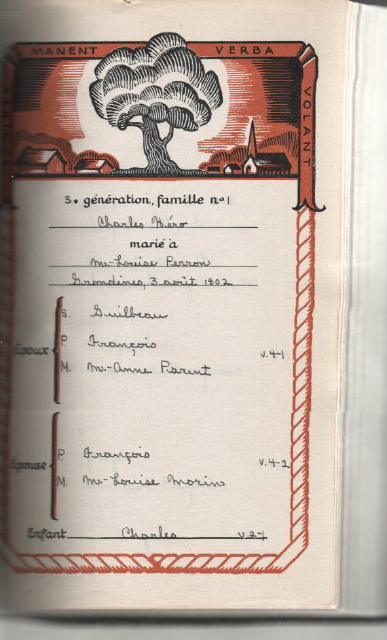 MANENT VERBA VOLANT
3e génération, famille no 1
Charles Héro
marié à
M.-Louise Perron
Grondines, 3 août 1802
S. Guilbeau
Époux
P. François
v. 4-1
M. M.-Anne Parent
Épouse
P. François
v. 4-2
M. M.-Louise Morin
Enfant Charles v. 2-1